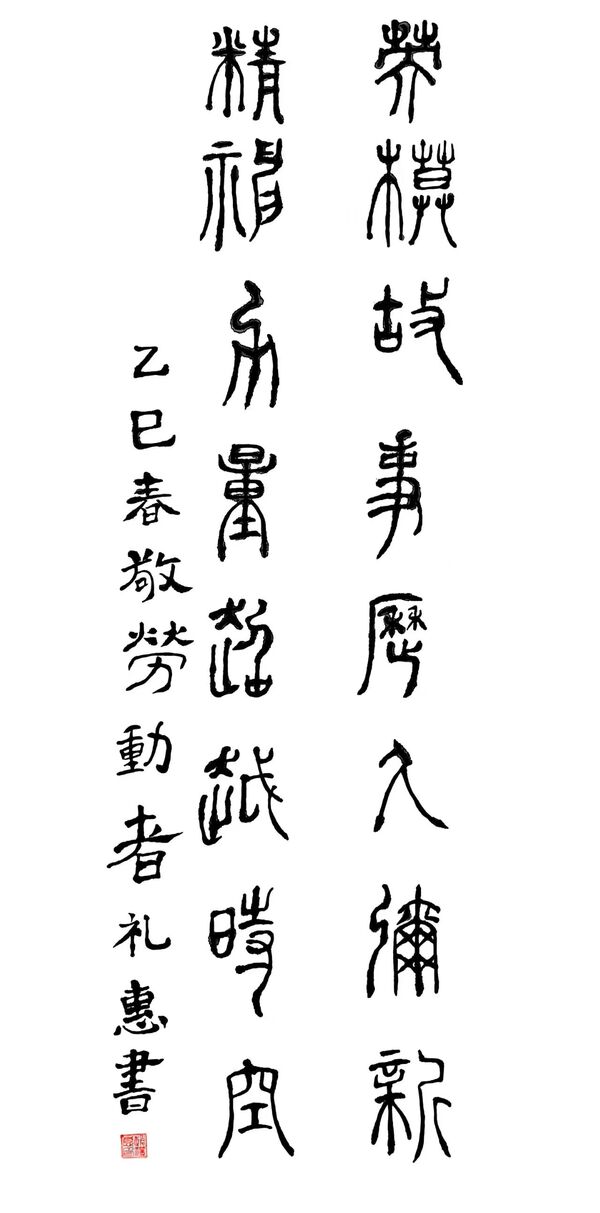 勞模故事歷久彌新
精神力量超越時空
乙巳春敬勞動者礼惠書